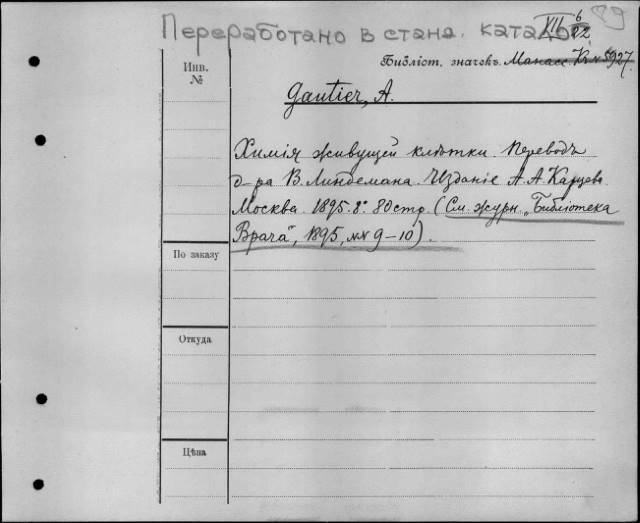 Переработано в стана. катало 89
XII 6/22
Библіот. значекъ Манасс. Кг № 5927.
Инв. №
Gautier, A.
Химія живущей клѣтки. Переводъ
д-ра В. Линдемана. Изданіе А. А. Карцева
Москва. 1895. 8°. 80 стр. (См. журн. „Библіотека
Врача", 1895, №№ 9–10).
По заказу
Откуда
Цѣна